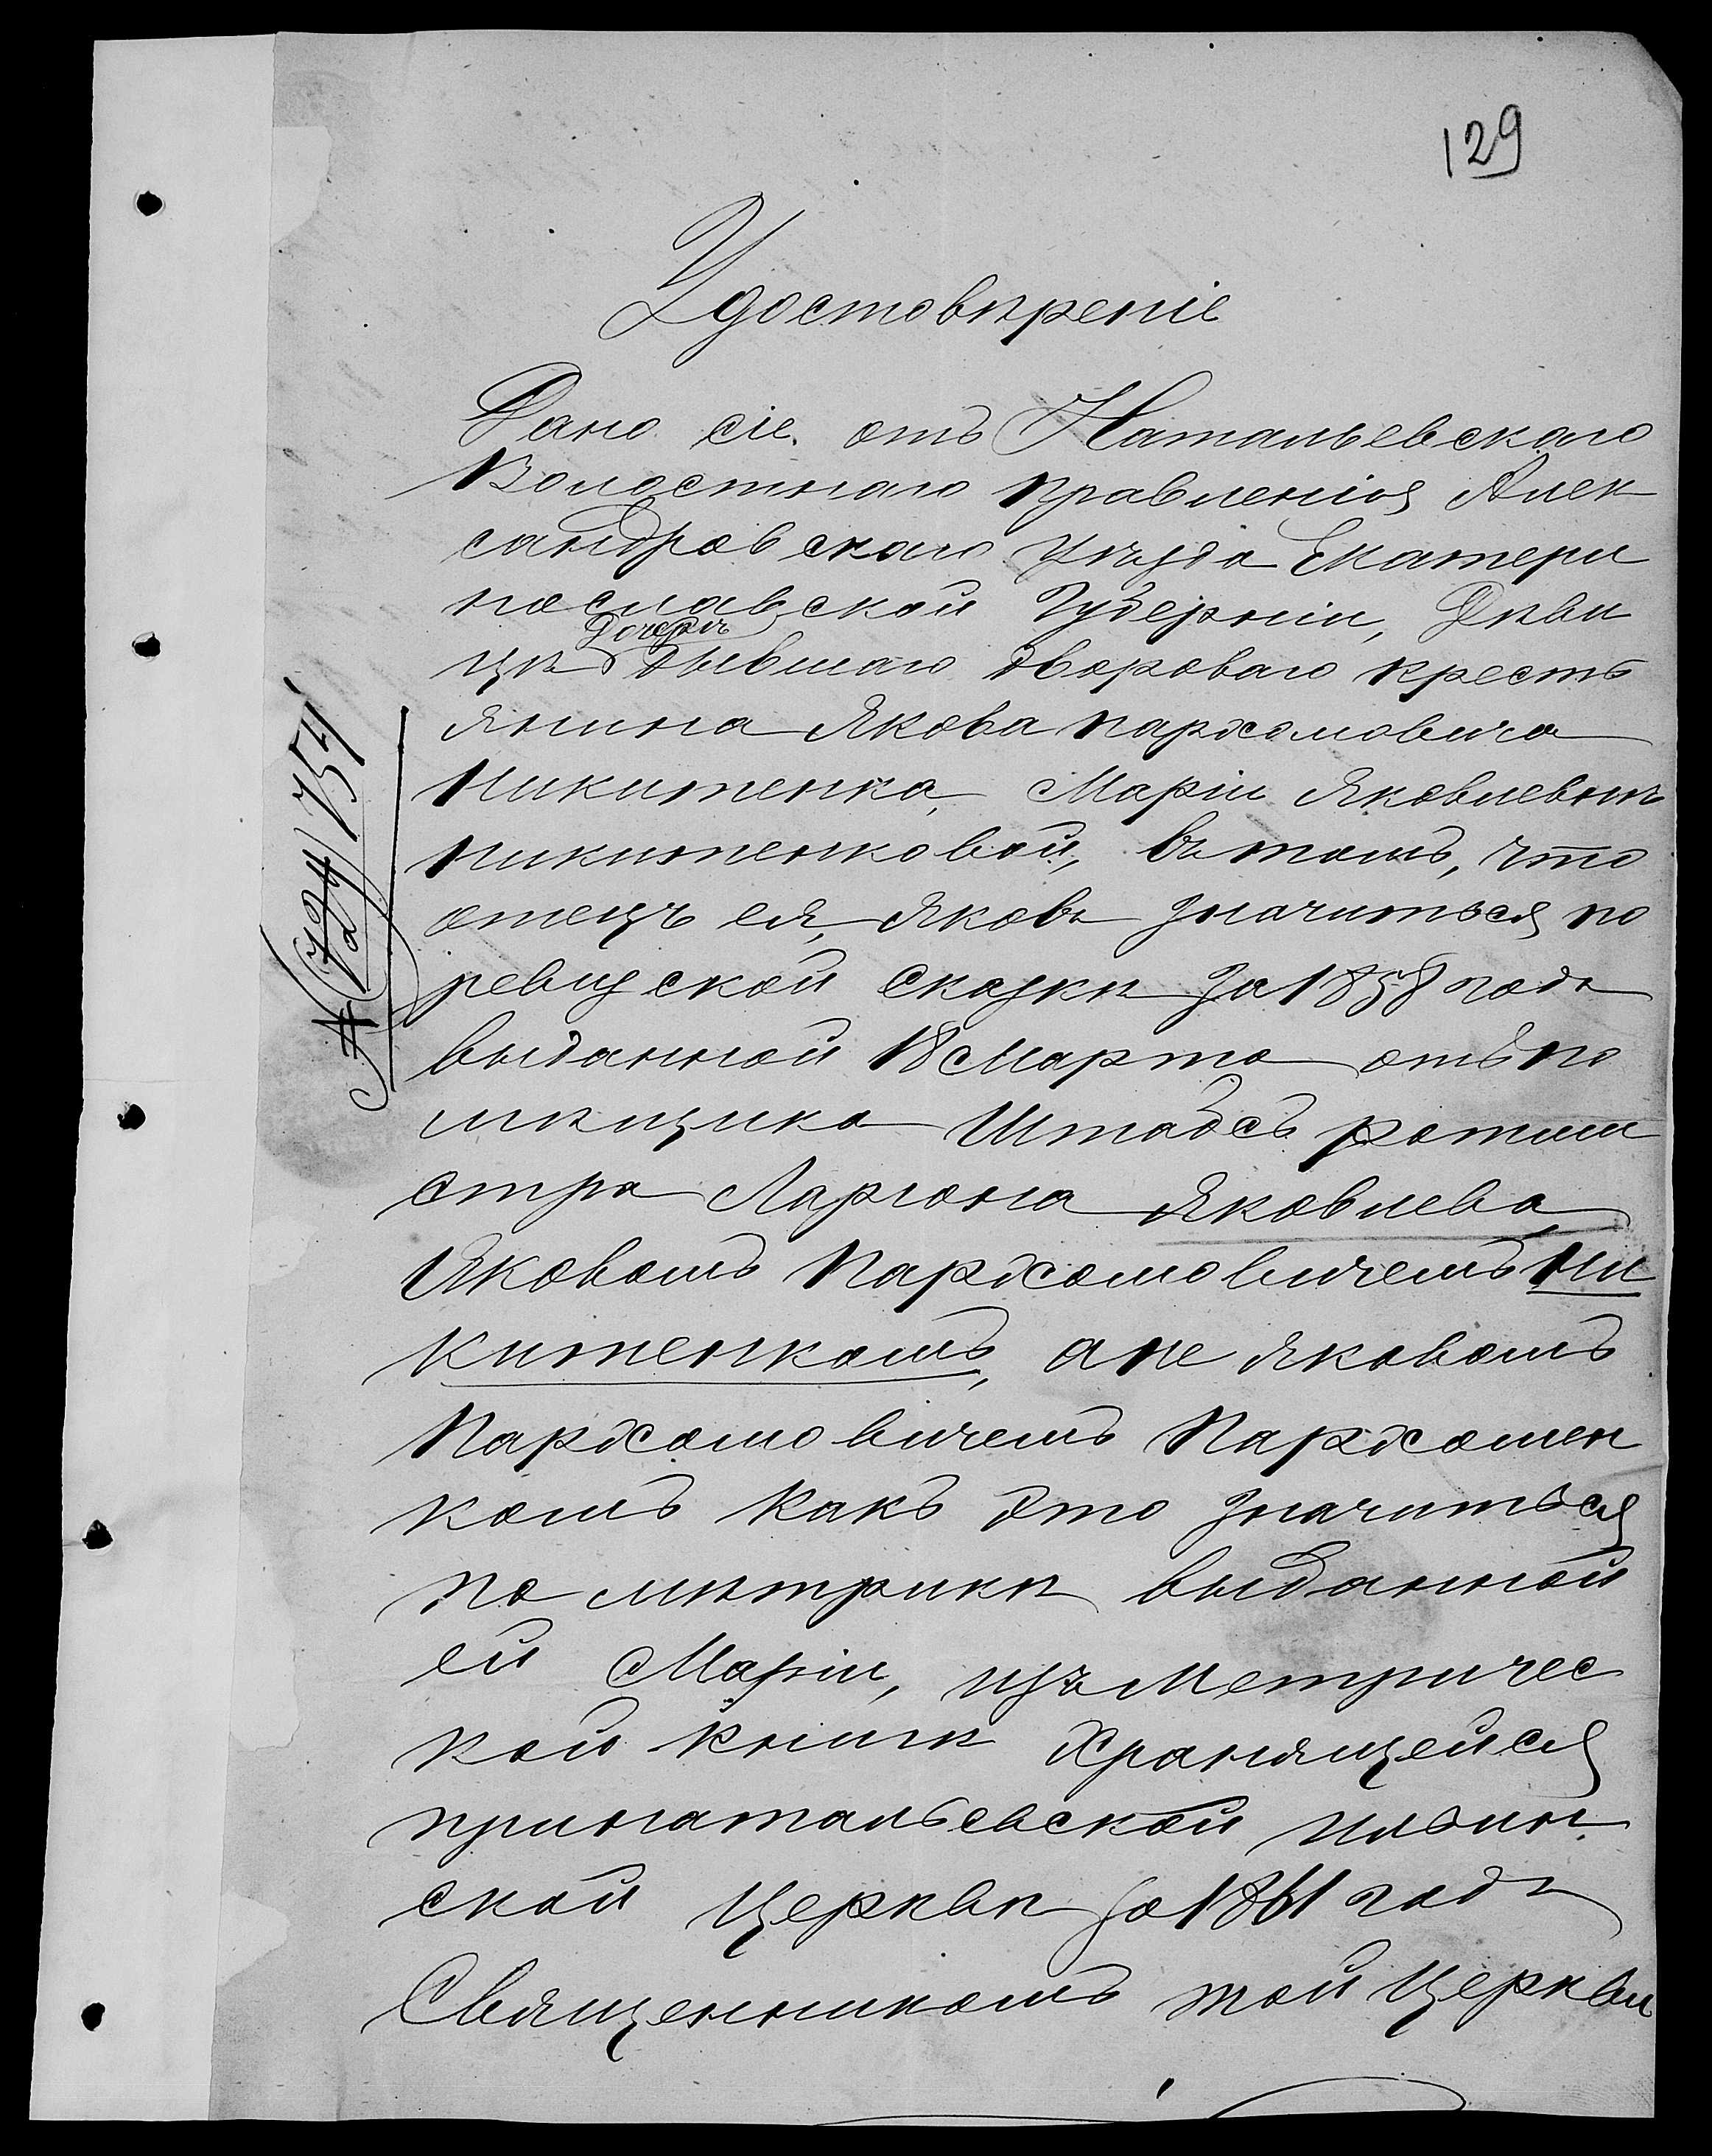 129
Удостовѣреніе
Дано сіе отъ Натальевскаго
Волостнаго правленія, Алек
сандровскаго уѣзда Екатери
нославской Губерніи, Дѣви
Дочери
цѣ бывшаго двороваго кресть
янина Якова Пархомовича
Никитенка, Маріи Яковлевнѣ
Никитенковой, въ томъ, что
отецъ ея, Яковъ значиться по
ревизской сказкѣ за 1858 годъ
выданной 18 Марта отъ по
мѣщика Штабсъ ротми
стра Ларіона Яковлева,
Яковомъ Пархомовичемъ Ни
китенкомъ, а не Яковомъ
Пархомовичемъ Пархомен
комъ какъ это значиться
по мѣтрикѣ выданной
ей Маріи, изъ Метричес
кой книгѣ хранящейся
при Натальевской Ильин
ской Церквѣ за 1861 годъ
Священникомъ той Церкви
754